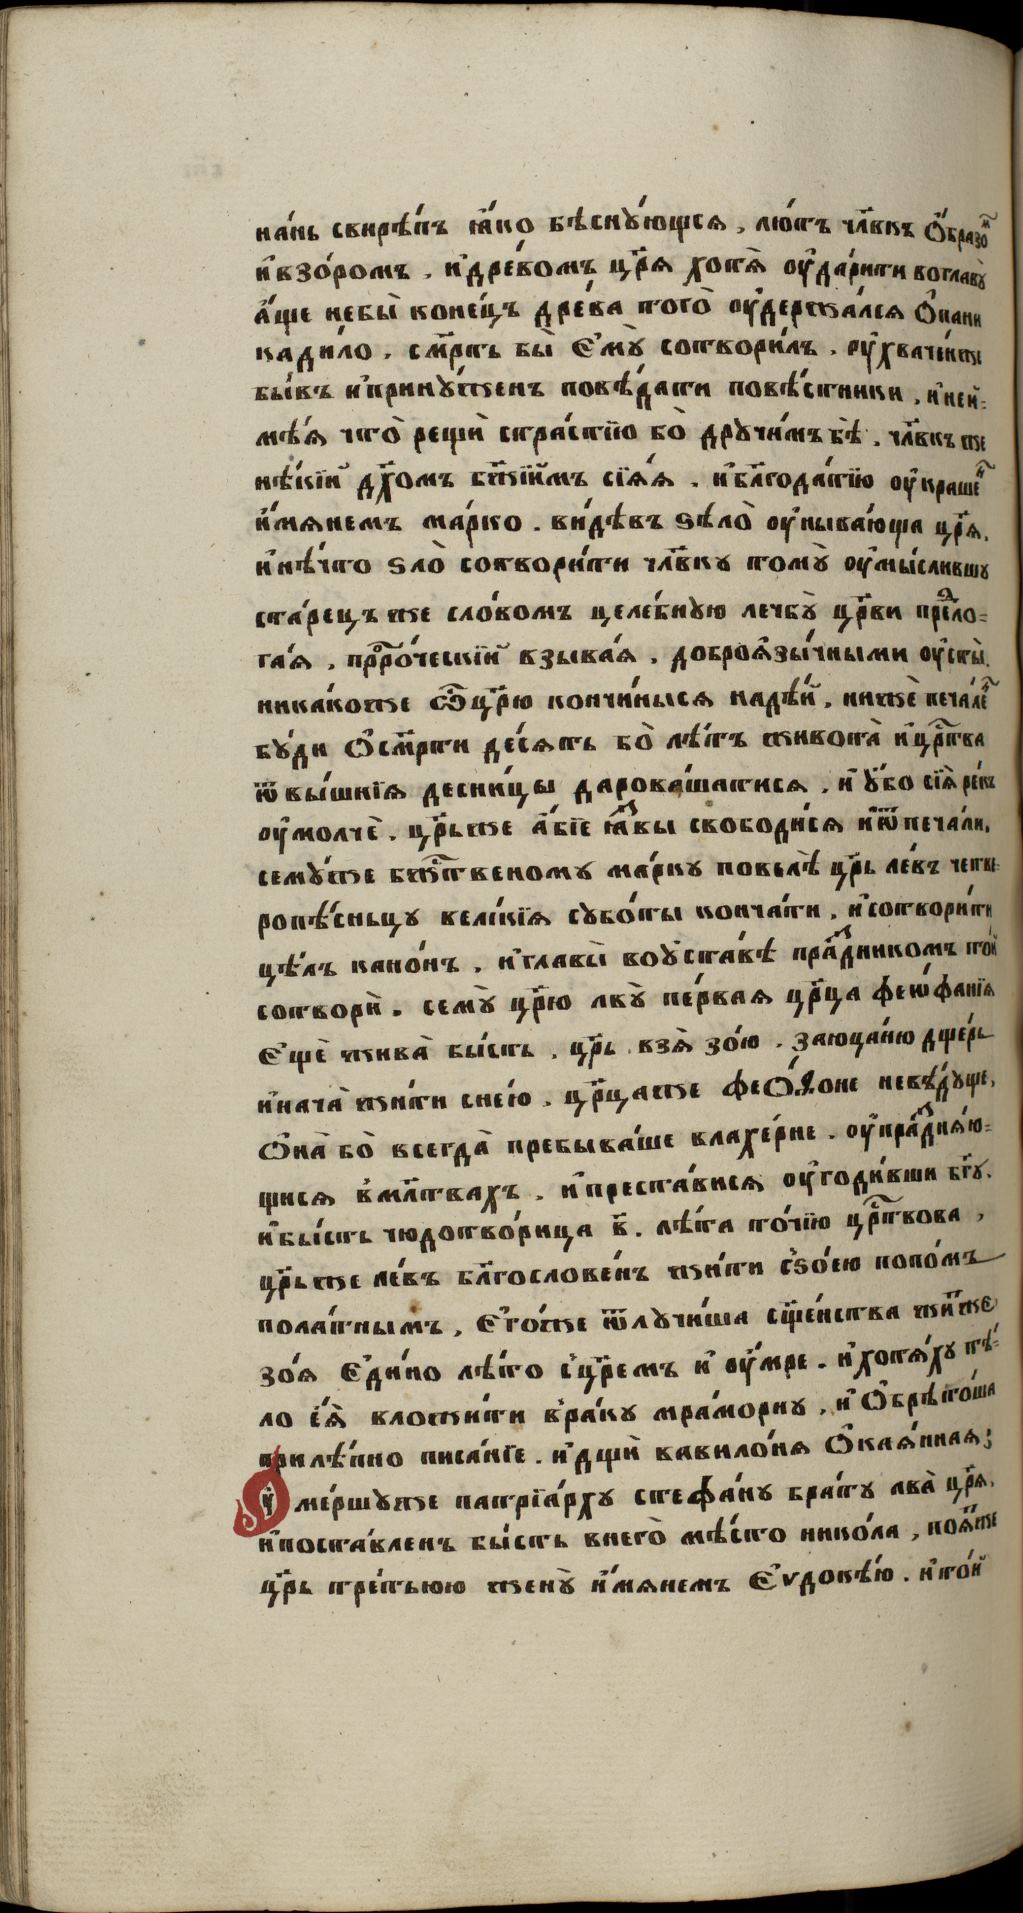 на́нь свирѣ́пъ ꙗ҆́ко бѣсну́ющсѧ, лю́тъ чл҃вкъ ѻ҆́бразоⷨ
и҆ взо́ромъ. и҆ дре́вомъ цр҃ѧ хотѧ̀ ᲂу҆да́рити во главꙋ̀
а҆́ще не бы̀ коне́цъ дре́ва того̀ ᲂу҆держа́лсѧ ѻ҆ пани
кади́ло. см҃рть бы̀ є҆мꙋ̀ сотвори́лъ. ᲂу҆хваче́нже
бы́въ и҆ прину́женъ повѣ́дати повѣ́стники, и҆ не и҆-
мѣ́ѧ что̀ рещѝ стра́стїю бо̀ дручи́мъ бѣ̀. чл҃вкъ же
нѣ́кїй дх҃омъ бж҃їимъ сїѧ́ѧ. и҆ бл҃года́тїю ᲂу҆краше́ⷩ
и҆́мѧнемъ ма́рко. ви́дѣвъ ѕѣло̀ ᲂу҆ныва́юща цр҃ѧ̀.
и҆ нѣ́что ѕло̀ сотвори́ти чл҃вку тому̀ ᲂу҆мы́слившу
ста́рецъ же сло́вомъ целе́бную лечбу̀ цр҃ви преⷣло-
га́ѧ, прⷪ҇ро́ческїй взыва́ѧ. доброѧзы́чными ᲂу҆сты̀.
ника́коже ѽ цр҃ю кончи́ны сѧ надѣ́й, нижѐ печа́леⷩ
бу́ди ѻ҆ см҃рти де́сѧть бо̀ лѣ́тъ живота̀ и҆ црⷭ҇тва
ѿ вы́шнїѧ десни́цы дарова́шатисѧ. и҆ ᲂу҆́бо сїѧ̀ ре́къ
ᲂу҆молчѐ. цр҃ь же а҆́бїе ꙗ҆́звы свободи́сѧ и҆ ѿ печа́ли.
семꙋ́же бж҃твеному ма́рку повелѣ̀ цр҃ь ле́въ четве-
ропѣ́сньцу вели́кїѧ субо́ты конча́ти. и҆ сотвори́ти
цѣ́лъ кано́нъ. и҆ главы̀ во ᲂу҆ста́вѣ пра́здником то́й
сотворѝ. сему̀ цр҃ю лву̀ пе́рваѧ цр҃ца феѡфа́нїѧ
є҆щѐ жива̀ бы́сть. цр҃ь взѧ̀ зо́ю. заюца́ню дще́рь
и҆ нача̀ жи́ти с не́ю. цр҃ца же феѡѳоне невѣ́дуще,
ѻ҆на̀ бо̀ всегда̀ пребыва́ше влахе́рне. ᲂу҆пра́зднѧю-
щисѧ в мл҃твахъ. и҆ преста́висѧ ᲂу҆годи́вши бг҃у.
и҆ бы́сть чюдотво́рица в҃. лѣ́та то́чїю црⷭ҇твова,
цр҃ь же ле́въ бл҃гослове́нъ жи́ти с зо́ею попо́мъ
пола́тнымъ, є҆го́же ѿлучи́ша сщ҃е́нства жи́тже
зо́ѧ є҆ди́но лѣ́то с цр҃емъ и҆ ᲂу҆́мре. и҆ хотѧ́ху тѣ́-
ло е҆ѧ̀ вложи́ти в ра́ку мра́морну. и҆ ѻ҆брѣто́ша
прилѣ́пно писа́нїе. и҆ дщѝ вавило́нѧ ѻ҆каѧ́ннаѧ;
ᲂу҆ме́ршуже патрїа́рху стефа́ну бра́ту лва̀ цр҃ѧ̀.
и҆ поста́вленъ бы́сть в него̀ мѣ́сто нико́ла, поѧ́тже
цр҃ь тре́тьюю жену̀ и҆́мѧнемъ є҆ѵдокѣ́ю. и҆ то́й